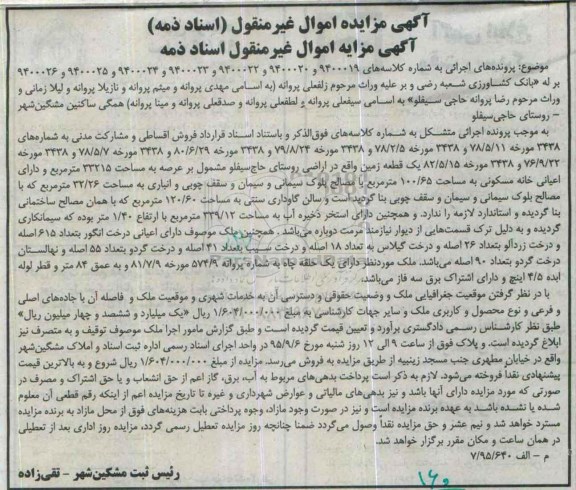 آگهی مزایده اموال غیرمنقول (اسناد ذمه)
آگهی مزایه اموال غیرمنقول اسناد ذمه
موضوع: پرونده‌های اجرائی به شماره کلاسه‌های ۹۴۰۰۰۱۹ و ۹۴۰۰۰۲۰ و ۹۴۰۰۰۲۲ و ۹۴۰۰۰۲۳ و ۹۴۰۰۰۲۴ و ۹۴۰۰۰۲۵ و ۹۴۰۰۰۲۶
بر له «بانک کشاورزی شعبه رضی و بر علیه وراث مرحوم زلفعلی پروانه (به اسامی مهدی پروانه و میثم پروانه و نازیلا پروانه و لیلا زمانی و
وراث مرحوم رضا پروانه حاجی سیفلو» به اسامی سیفعلی پروانه و لطفعلی پروانه و صدقعلی پروانه و مینا پروانه) همگی ساکنین مشگین‌شهر
– روستای حاجی‌سیفلو
به موجب پرونده اجرائی متشکل به شماره کلاسه‌های فوق‌الذکر و باستناد اسناد قرارداد فروش اقساطی و مشارکت مدنی به شماره‌های
۳۴۳۸ مورخه ۷۸/۵/۱۱ و ۳۴۳۸ مورخه ۷۸/۲/۵ و ۳۴۳۸ مورخه ۷۹/۸/۲۴ و ۳۴۳۸ مورخه ۸۰/۶/۲۹ و ۳۴۳۸ مورخه ۷۸/۵/۷ و ۳۴۳۸ مورخه
۷۶/۹/۲۲ و ۳۴۳۸ مورخه ۸۲/۵/۱۵ یک قطعه زمین واقع در اراضی روستای حاج‌سیفلو مشمول بر عرصه به مساحت ۳۳۲۱۵ مترمربع و دارای
اعیانی خانه مسکونی به مساحت ۱۰۰/۶۵ مترمربع با مصالح بلوک سیمانی و سیمان و سقف چوبی و انباری به مساحت ۳۲/۲۶ مترمربع که با
مصالح بلوک سیمانی و سیمان و سقف چوبی بنا گردیده است و سالن گاوداری سنتی به مساحت ۱۲۰/۶۰ مترمربع که با همان مصالح ساختمانی
بنا گردیده و استاندارد لازمه را ندارد. و همچنین دارای استخر ذخیره آب به مساحت ۳۳۹/۱۲ مترمربع با ارتفاع ۱/۴۰ متر بوده که سیمانکاری
گردیده و به دلیل ترک قسمت‌هایی از دیوار نیازمند مرمت دوباره می‌باشد. همچنین ملک موصوف دارای اعیانی درخت انگور بتعداد ۶۱۵ اصله
و درخت زردآلو بتعداد ۲۶ اصله و درخت گیلاس به تعداد ۱۸ اصله و درخت سیب بتعداد ۴۱ اصله و درخت گردو بتعداد ۵۵ اصله و نهالستان
درخت گردو بتعداد ۹۰ اصله می‌باشد. ملک موردنظر دارای یک حلقه چاه به شماره پروانه ۵۷۴/۹ مورخه ۸۱/۷/۹ و به عمق ۸۴ متر و قطر لوله
آبده ۴/۵ اینچ و دارای اشتراک برق سه فاز می‌باشد.
با در نظر گرفتن موقعیت جغرافیایی ملک و وضعیت حقوقی و دسترسی آن به خدمات شهری و موقعیت ملک و فاصله آن با جاده‌های اصلی
و فرعی و نوع محصول و کاربری ملک و سایر جهات کارشناسی به مبلغ ۱/۶۰۴/۰۰۰/۰۰۰ ریال «یک میلیارد و ششصد و چهار میلیون ریال»
طبق نظر کارشناس رسمی دادگستری برآورد و تعیین قیمت گردیده است و طبق گزارش مامور اجرا ملک موصوف توقیف و به متصرف نیز
ابلاغ گردیده است. و پلاک فوق از ساعت ۹ الی ۱۲ روز شنبه مورخ ۹۵/۹/۶ در واحد اجرای اسناد رسمی اداره ثبت اسناد و املاک مشگین‌شهر
واقع در خیابان مطهری جنب مسجد زینبیه از طریق مزایده به فروش می‌رسد. مزایده از مبلغ ۱/۶۰۴/۰۰۰/۰۰۰ ریال شروع و به بالاترین قیمت
پیشنهادی نقداً فروخته می‌شود. لازم به ذکر است پرداخت بدهی‌های مربوط به آب، برق، گاز اعم از حق انشعاب و یا حق اشتراک و مصرف در
صورتی که مورد مزایده دارای آنها باشد و نیز بدهی‌های مالیاتی و عوارض شهرداری و غیره تا تاریخ مزایده اعم از اینکه رقم قطعی آن معلوم
شده یا نشده باشد به عهده برنده مزایده است و نیز در صورت وجود مازاد، وجوه پرداختی بابت هزینه‌های فوق از محل مازاد به برنده مزایده
مسترد خواهد شد و نیم عشر و حق مزایده نقداً وصول می‌گردد ضمنا چنانچه روز مزایده تعطیل رسمی گردد، مزایده روز اداری بعد از تعطیلی
در همان ساعت و مکان مقرر برگزار خواهد شد.
م – الف ۷/۹۵/۶۴۰
رئیس ثبت مشگین‌شهر – تقی‌زاده